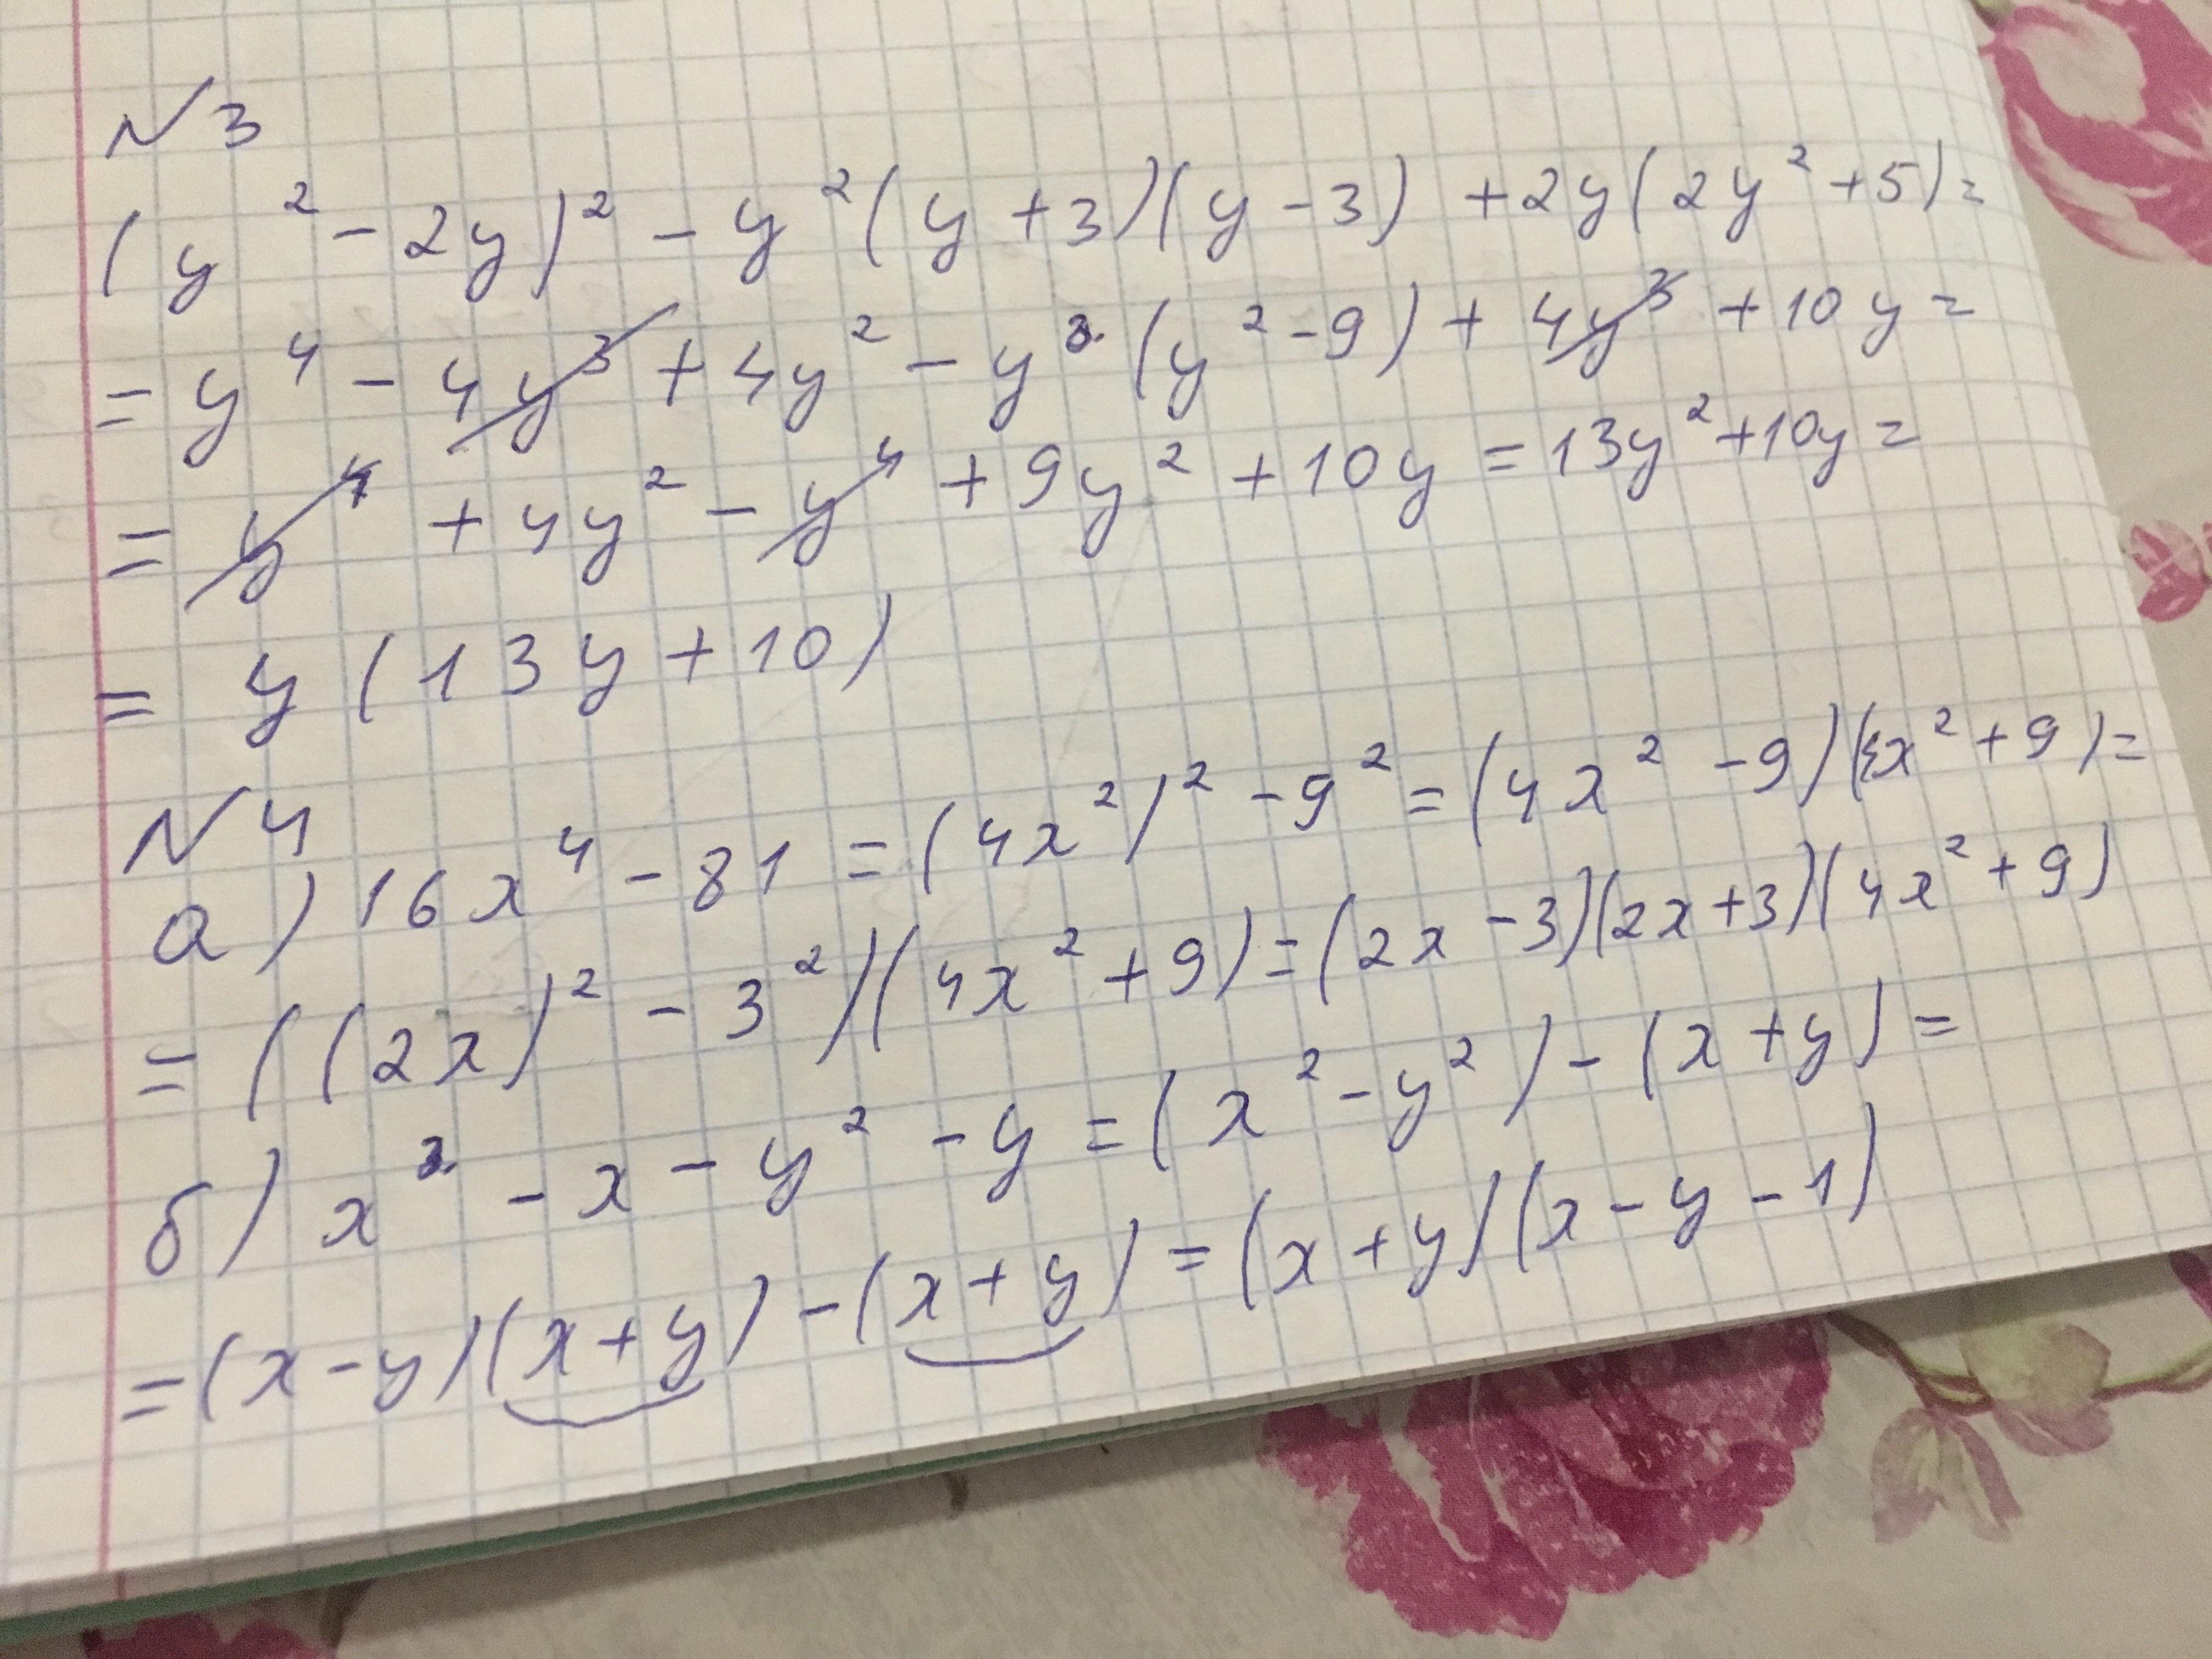 №3
(y² - 2y)² - y²(y+3)(y-3) + 2y(2y²+5) =
= y⁴ - 4y³ + 4y² - y²(y²-9) + 4y³ + 10y =
= y⁴ + 4y² - y⁴ + 9y² + 10y = 13y² + 10y =
= y(13y+10)
№4
а) 16x⁴ - 81 = (4x²)² - 9² = (4x² - 9)(4x² + 9) =
= ((2x)² - 3²)(4x² + 9) = (2x - 3)(2x+3)(4x² + 9)
б) x² - x - y² - y = (x² - y²) - (x + y) =
= (x - y)(x + y) - (x + y) = (x + y)(x - y - 1)